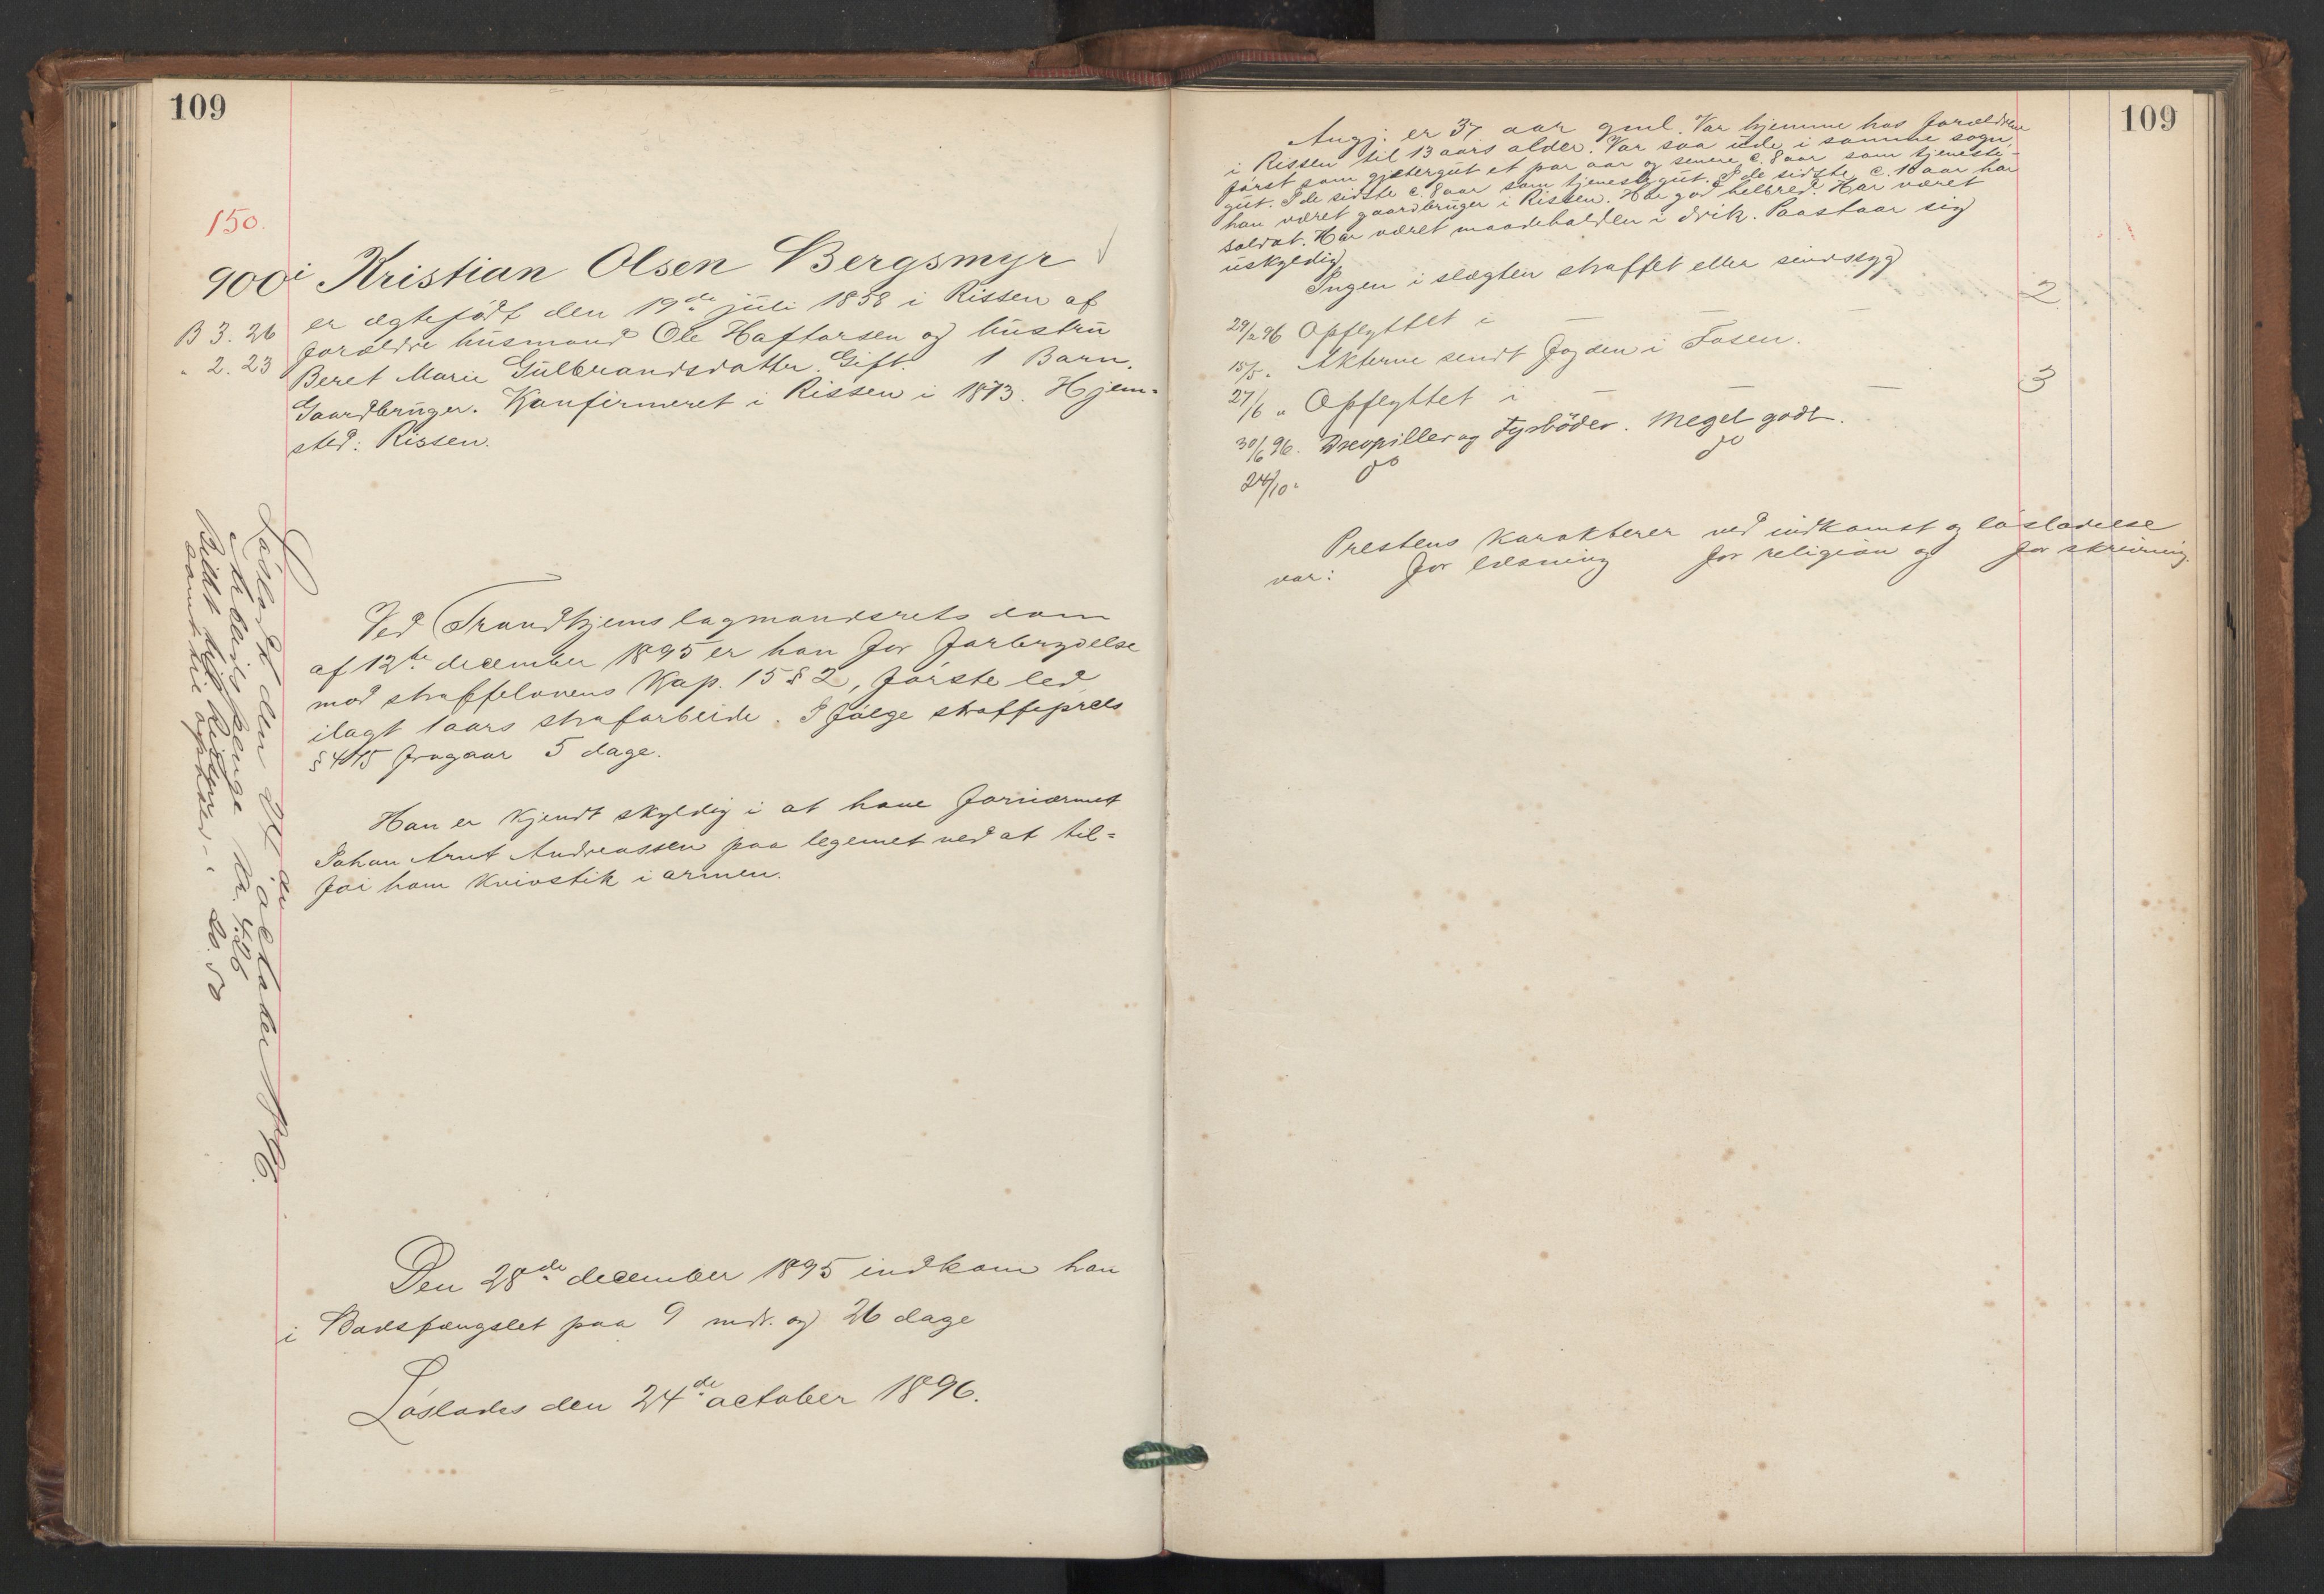 109
150.
900i Kristian Olsen Bergsmyr
er ægtefödt den 19de juli 1858 i Rissen af
B 3. 26 forældre husmand Ole Haftorsen og hustru
" 2. 23 Beret Marie Gulbrandsdatter. Gift. 1 Barn.
Gaardbruger. Konfirmeret i Rissen i 1873. Hjem=
sted: Rissen.
Lösladt den 24de october 1896.
Arbeidspenge kr. 4.26
Billet til Rissen
samt til - " 20.50
Ved Trondhjems lagmandsrets dom
af 12te december 1895 er han for forbrydelse
mod straffelovens Kap. 15 § 2, förste led
ilagt 1 aars strafarbeide. I fölge straffeprcls
§ 415 fragaar 5 dage.
Han er kjendt skyldig i at have fornærmet
Johan Arnt Andreassen paa legemet ved at til=
föi ham knivstik i armen.
Den 28de december 1895 indkom han
i Bodsfængslet paa 9 mdr. og 26 dage
Löslades den 24de october 1896.
109
Angj: er 37 aar gml. Var hjemme hos forældrene
i Rissen til 13 aars alder. Var saa ude i samme sogn,
först som gjætergut et par aar og senere c. 8 aar som tjeneste-
gut. I de sidste c. 8 aar som tjenestegut. I de sidste c. 10 aar har
han været gaardbruger i Rissen. Har god helbred. Har været
soldat. Har været maadeholden i drik. Paastaar sig
uskyldig
Ingen i slægten straffet eller sindssyg
29/2 96 Opflyttet i — — — 2
15/5 " Akterne sendt fogden i Fosen.
27/6 " Opflyttet i — — — 3
30/6 96. og Fyrböder. Meget godt.
24/10 " do do
Prestens karakterer ved indkomst og lösladelse
var: for læsning for religion og for skrivning.